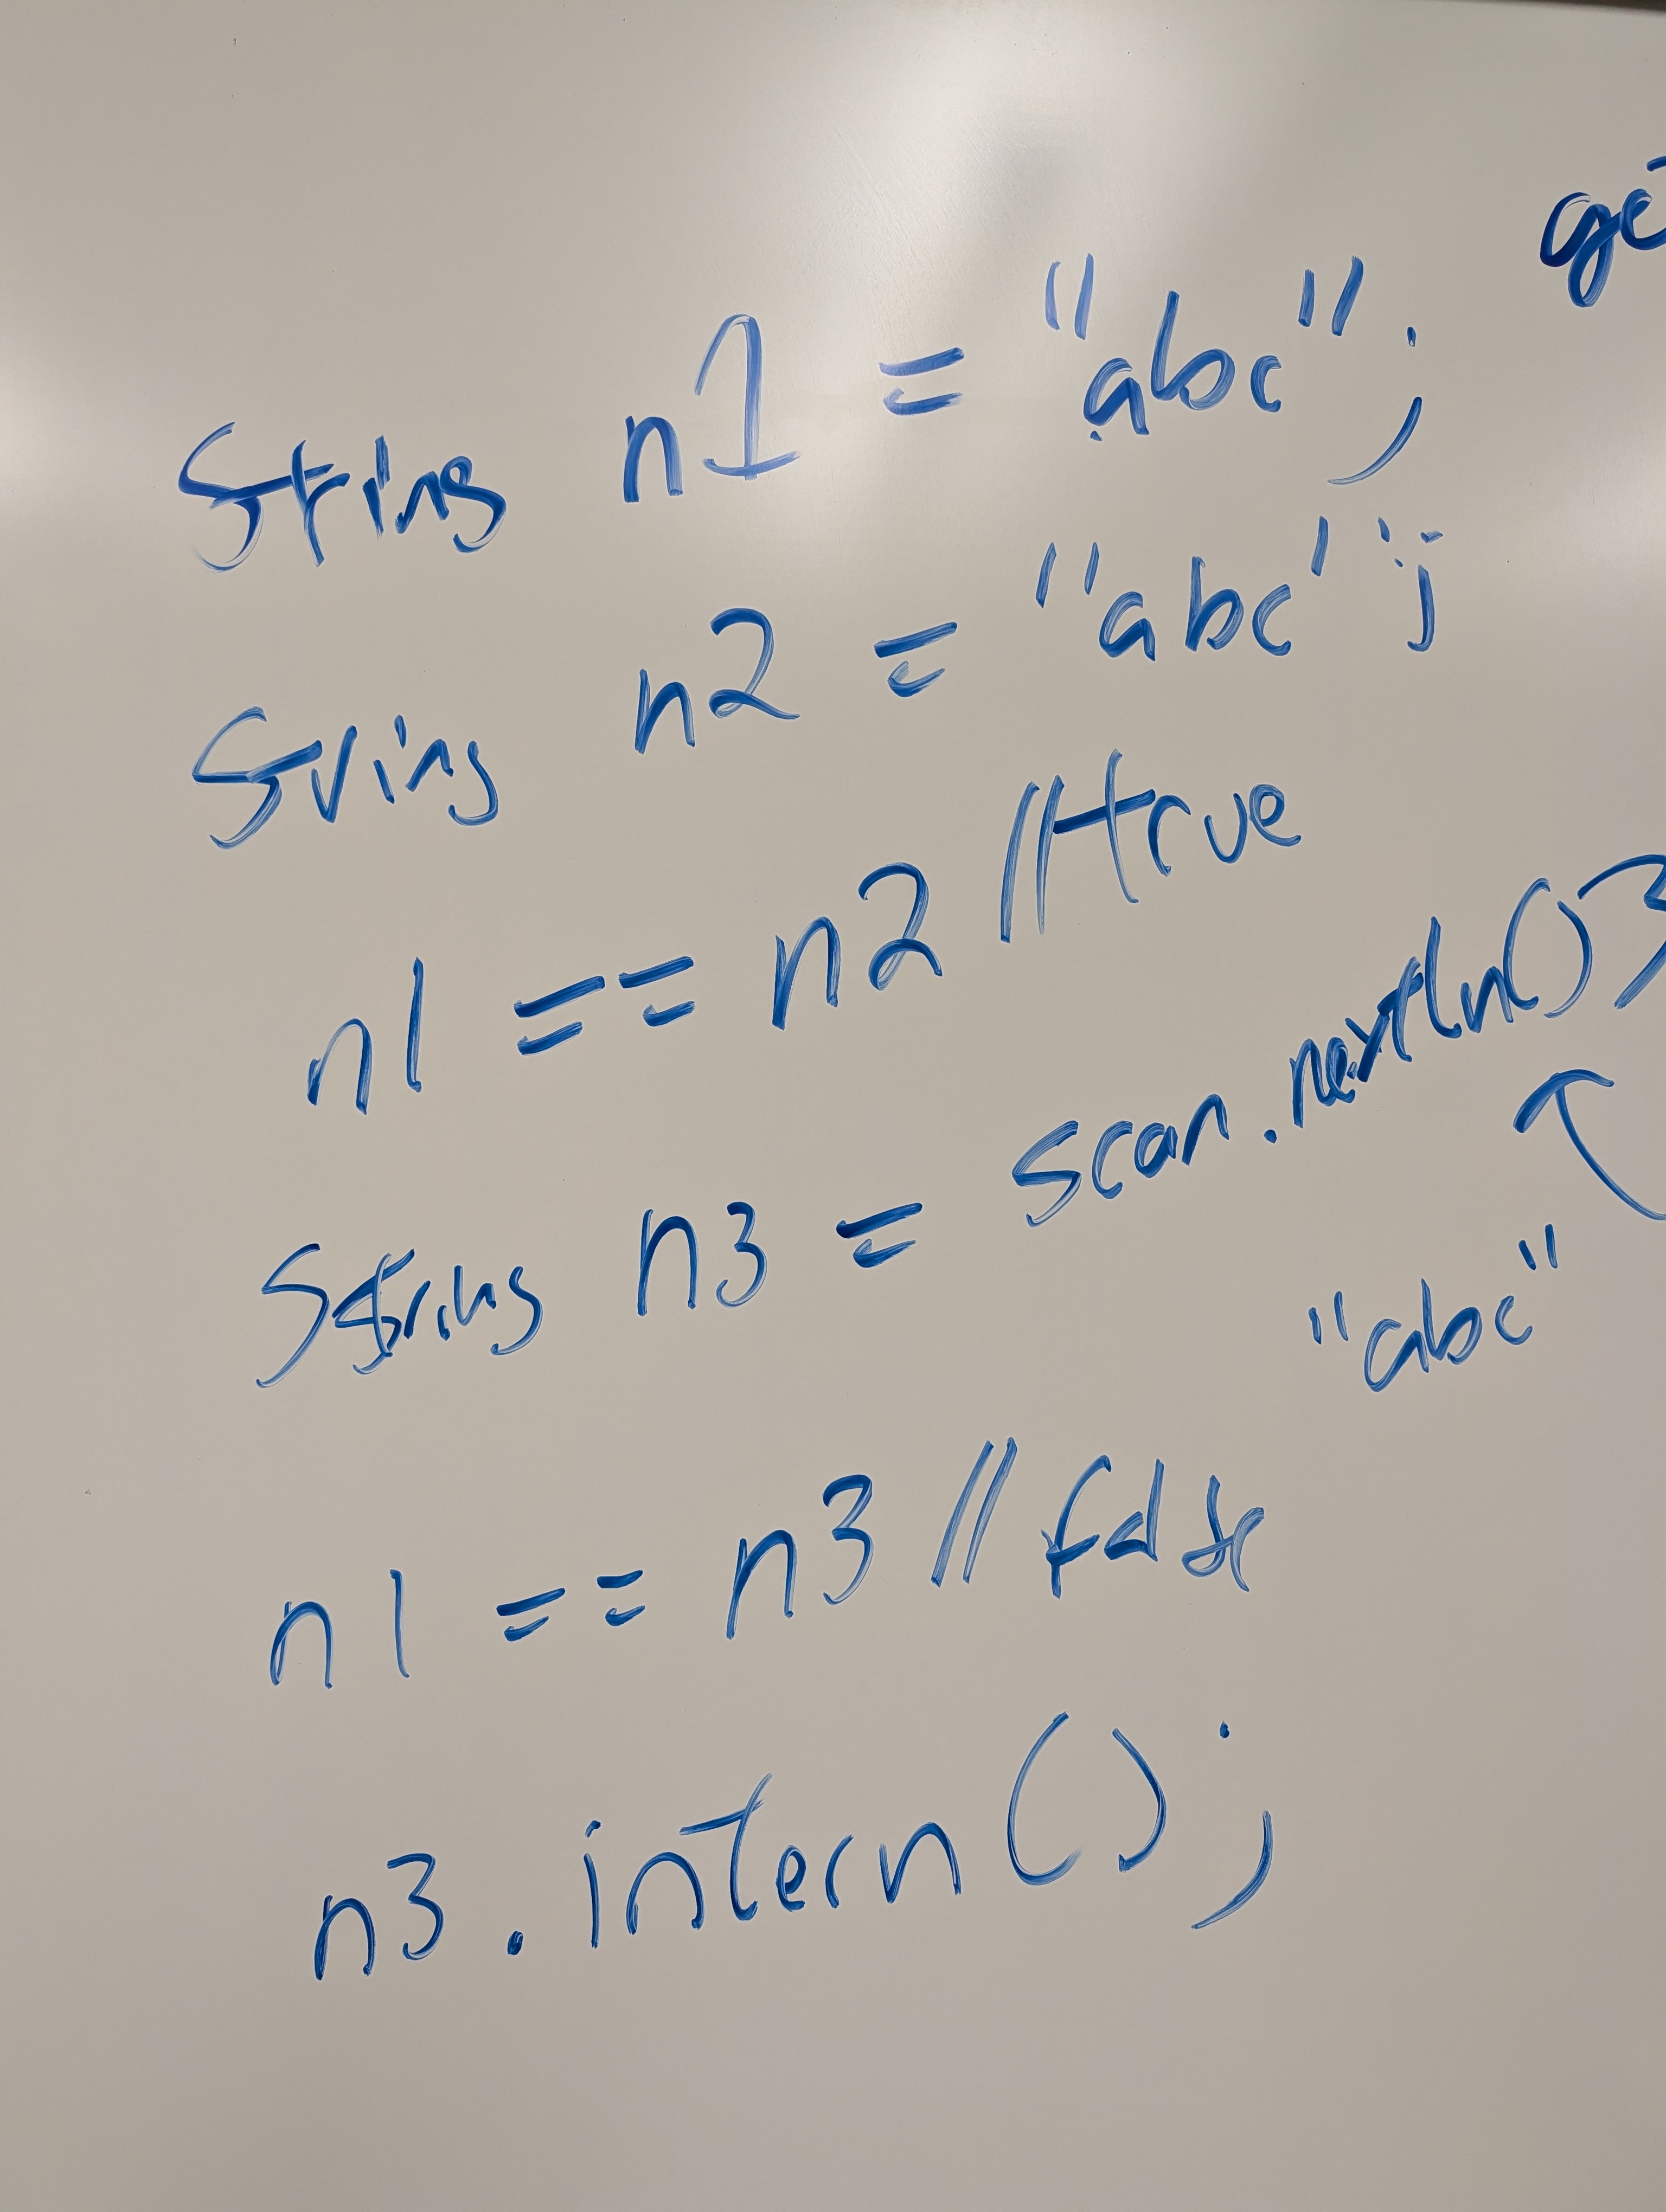 String n1 = "abc";
String n2 = "abc";
n1 == n2 //true
String n3 = scan.nextln()
"abc"
n1 == n3 //false
n3.intern();